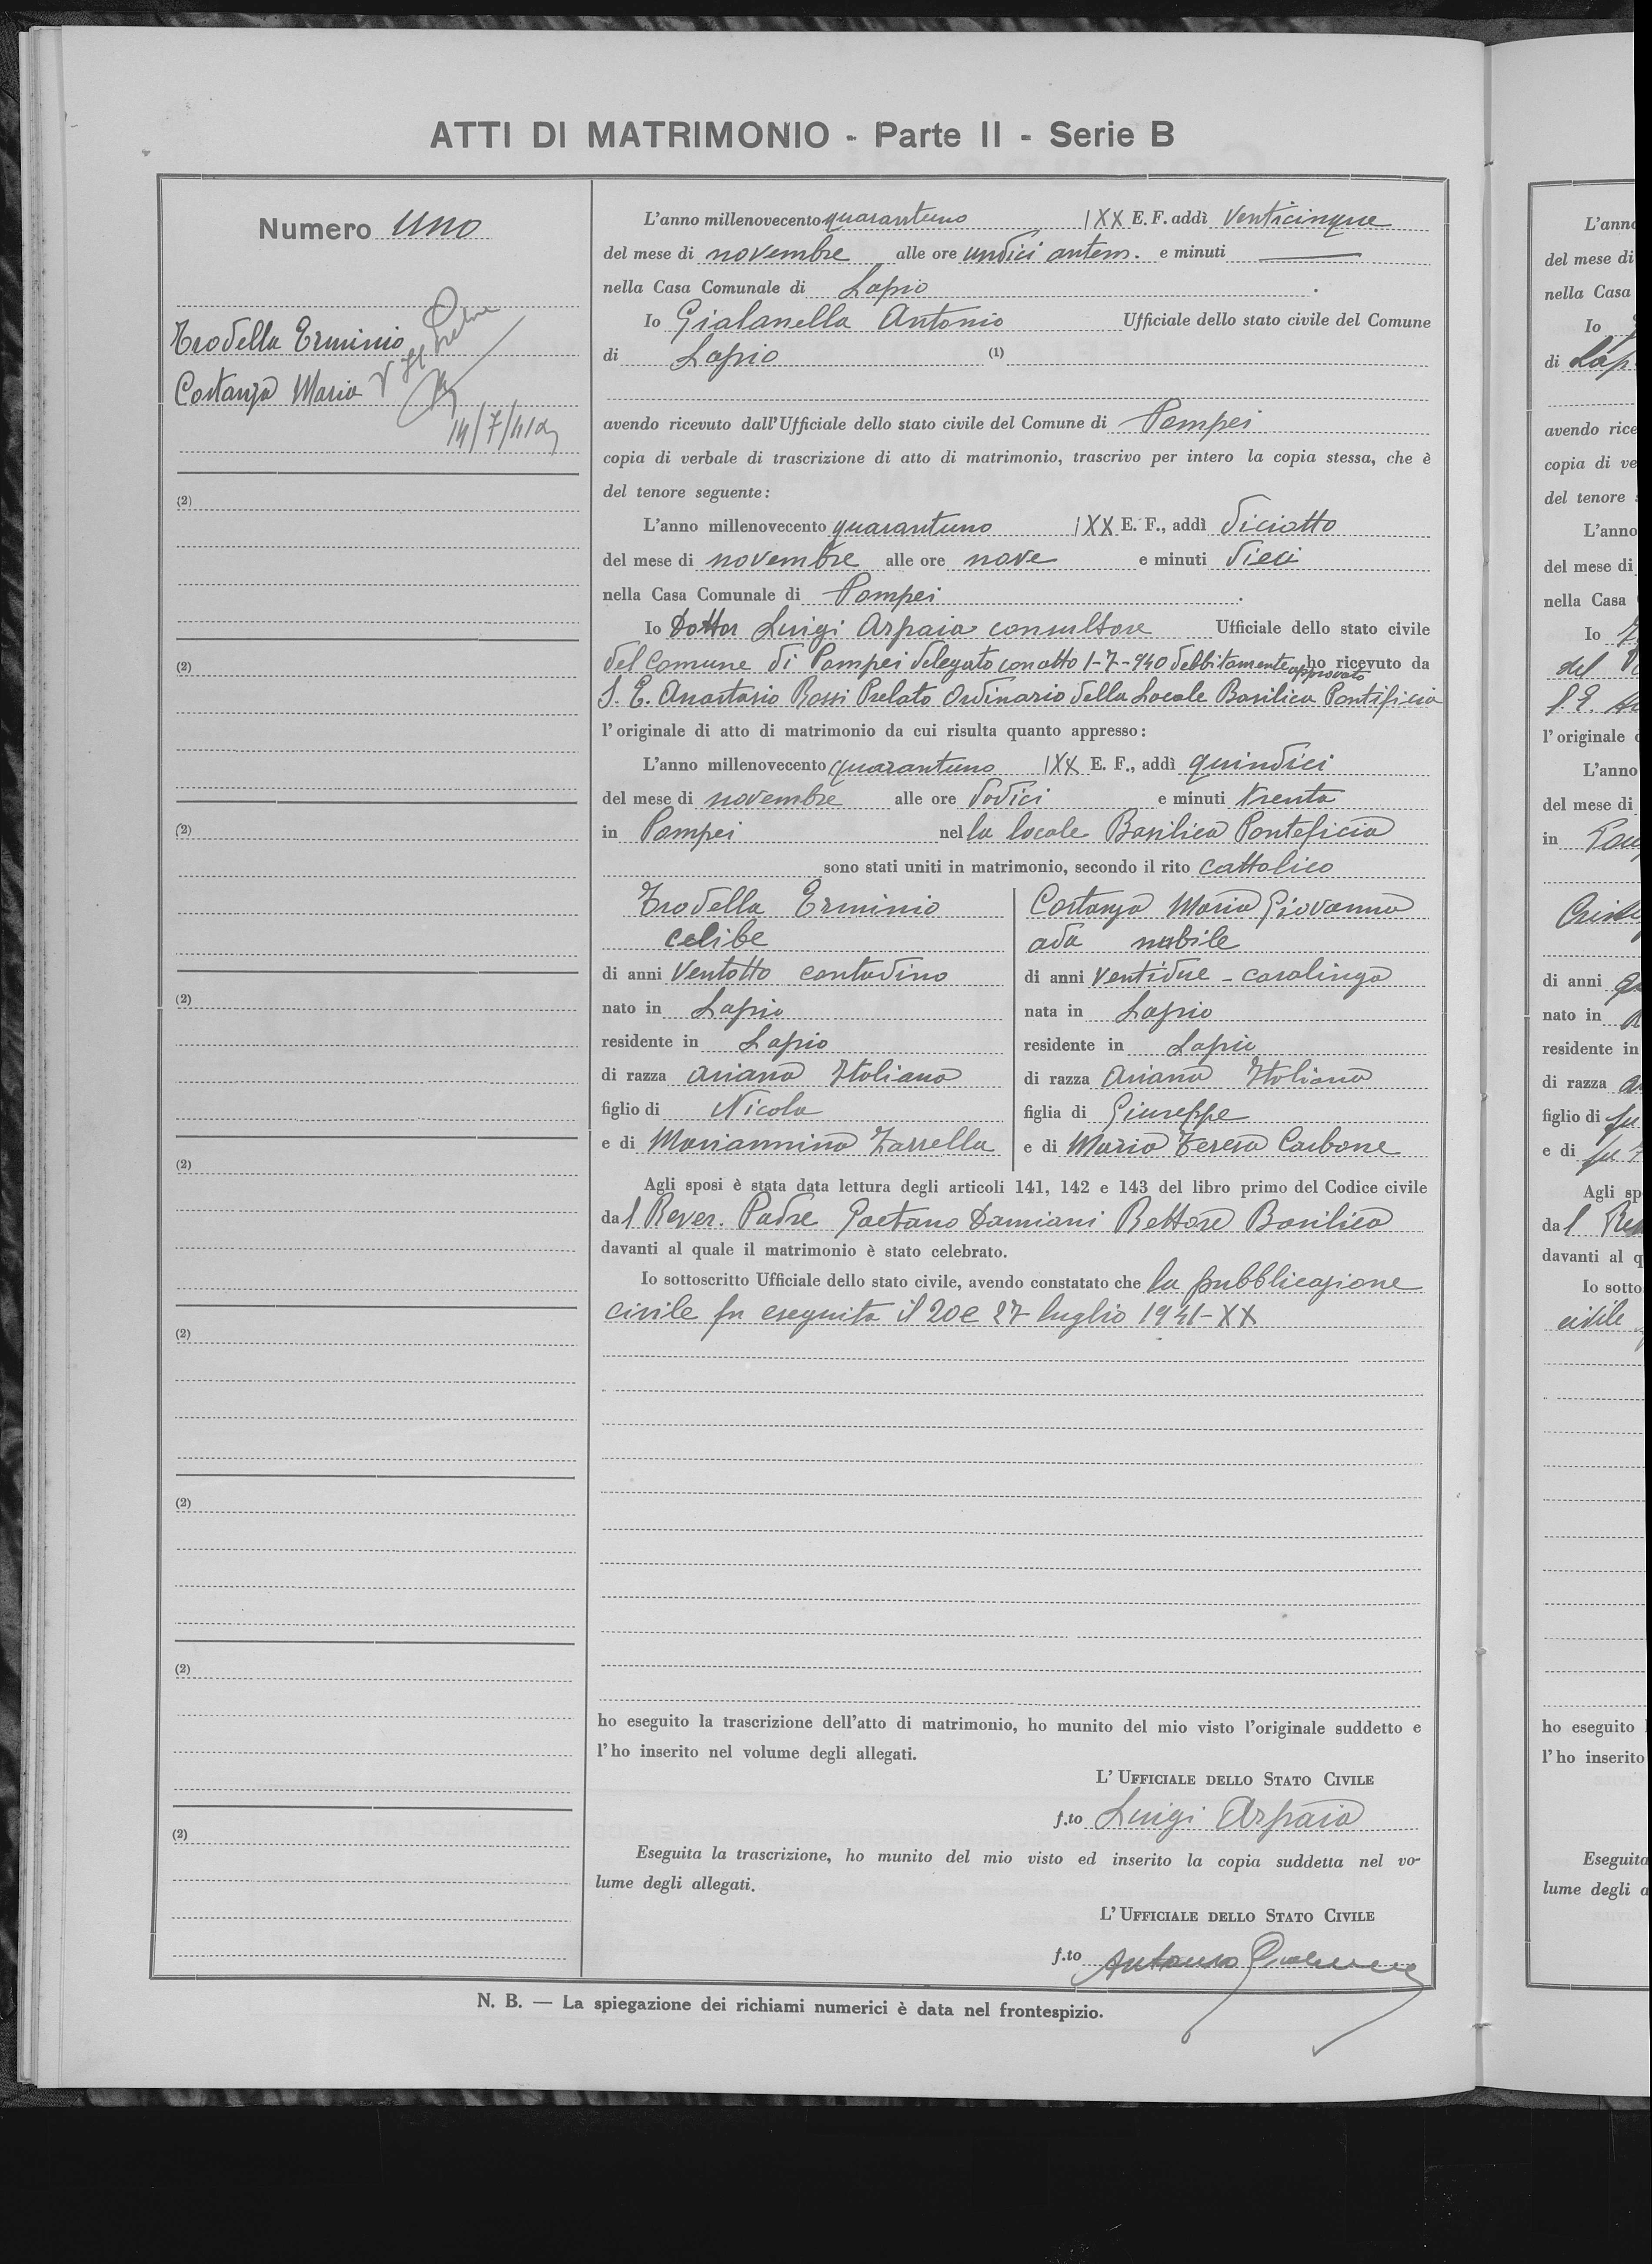 ATTI DI MATRIMONIO - Parte II - Serie B
Numero uno
Trodella Erminio
Costanza Maria
14/7/41
(2)
(2)
(2)
(2)
(2)
(2)
(2)
(2)
(2)
L'anno millenovecento quarantuno IXX E. F. addì venticinque
del mese di novembre alle ore undici antem. e minuti —
nella Casa Comunale di Lapio.
Io Gialanella Antonio Ufficiale dello stato civile del Comune
di Lapio (1)
avendo ricevuto dall'Ufficiale dello stato civile del Comune di Pompei
copia di verbale di trascrizione di atto di matrimonio, trascrivo per intero la copia stessa, che è
del tenore seguente:
L'anno millenovecento quarantuno IXX E. F., addì diciotto
del mese di novembre alle ore nove e minuti dieci
nella Casa Comunale di Pompei.
Io Dottor Luigi Arpaia consultore Ufficiale dello stato civile
del Comune di Pompei delegato con atto 1-7-940 debbitamente approvato ho ricevuto da
S. E. Anastasio Rossi Prelato Ordinario della Locale Basilica Pontificia
l'originale di atto di matrimonio da cui risulta quanto appresso:
L'anno millenovecento quarantuno IXX E. F., addì quindici
del mese di novembre alle ore dodici e minuti trenta
in Pompei nella locale Basilica Ponteficia
sono stati uniti in matrimonio, secondo il rito cattolico
Trodella Erminio
celibe
di anni ventotto contadino
nato in Lapio
residente in Lapio
di razza ariana Italiana
figlio di Nicola
e di Mariannina Zarrella
Costanza Maria Giovanna
ada nubile
di anni ventidue - casalinga
nata in Lapio
residente in Lapio
di razza ariana Italiana
figlia di Giuseppe
e di Maria Teresa Carbone
Agli sposi è stata data lettura degli articoli 141, 142 e 143 del libro primo del Codice civile
dal Rever. Padre Gaetano Damiani Rettore Basilica
davanti al quale il matrimonio è stato celebrato.
Io sottoscritto Ufficiale dello stato civile, avendo constatato che la pubblicazione
civile fu eseguita il 20 e 27 luglio 1941-XX
ho eseguito la trascrizione dell'atto di matrimonio, ho munito del mio visto l'originale suddetto e
l'ho inserito nel volume degli allegati.
L'UFFICIALE DELLO STATO CIVILE
f.to Luigi Arpaia
Eseguita la trascrizione, ho munito del mio visto ed inserito la copia suddetta nel vo-
lume degli allegati.
L'UFFICIALE DELLO STATO CIVILE
f.to Antonio Gialanella
N. B. — La spiegazione dei richiami numerici è data nel frontespizio.
L'anno
del mese di
nella Casa
Io
di Lap
avendo rice
copia di ve
del tenore
L'anno
del mese di
nella Casa
Io
del
S. E.
l'originale
L'anno
del mese di
in Pom
di anni
nato in
residente in
di razza
figlio di fu
e di fu
Agli sp
dal Rev
davanti al q
Io sotto
civile
ho eseguito
l'ho inserito
Eseguita
lume degli a